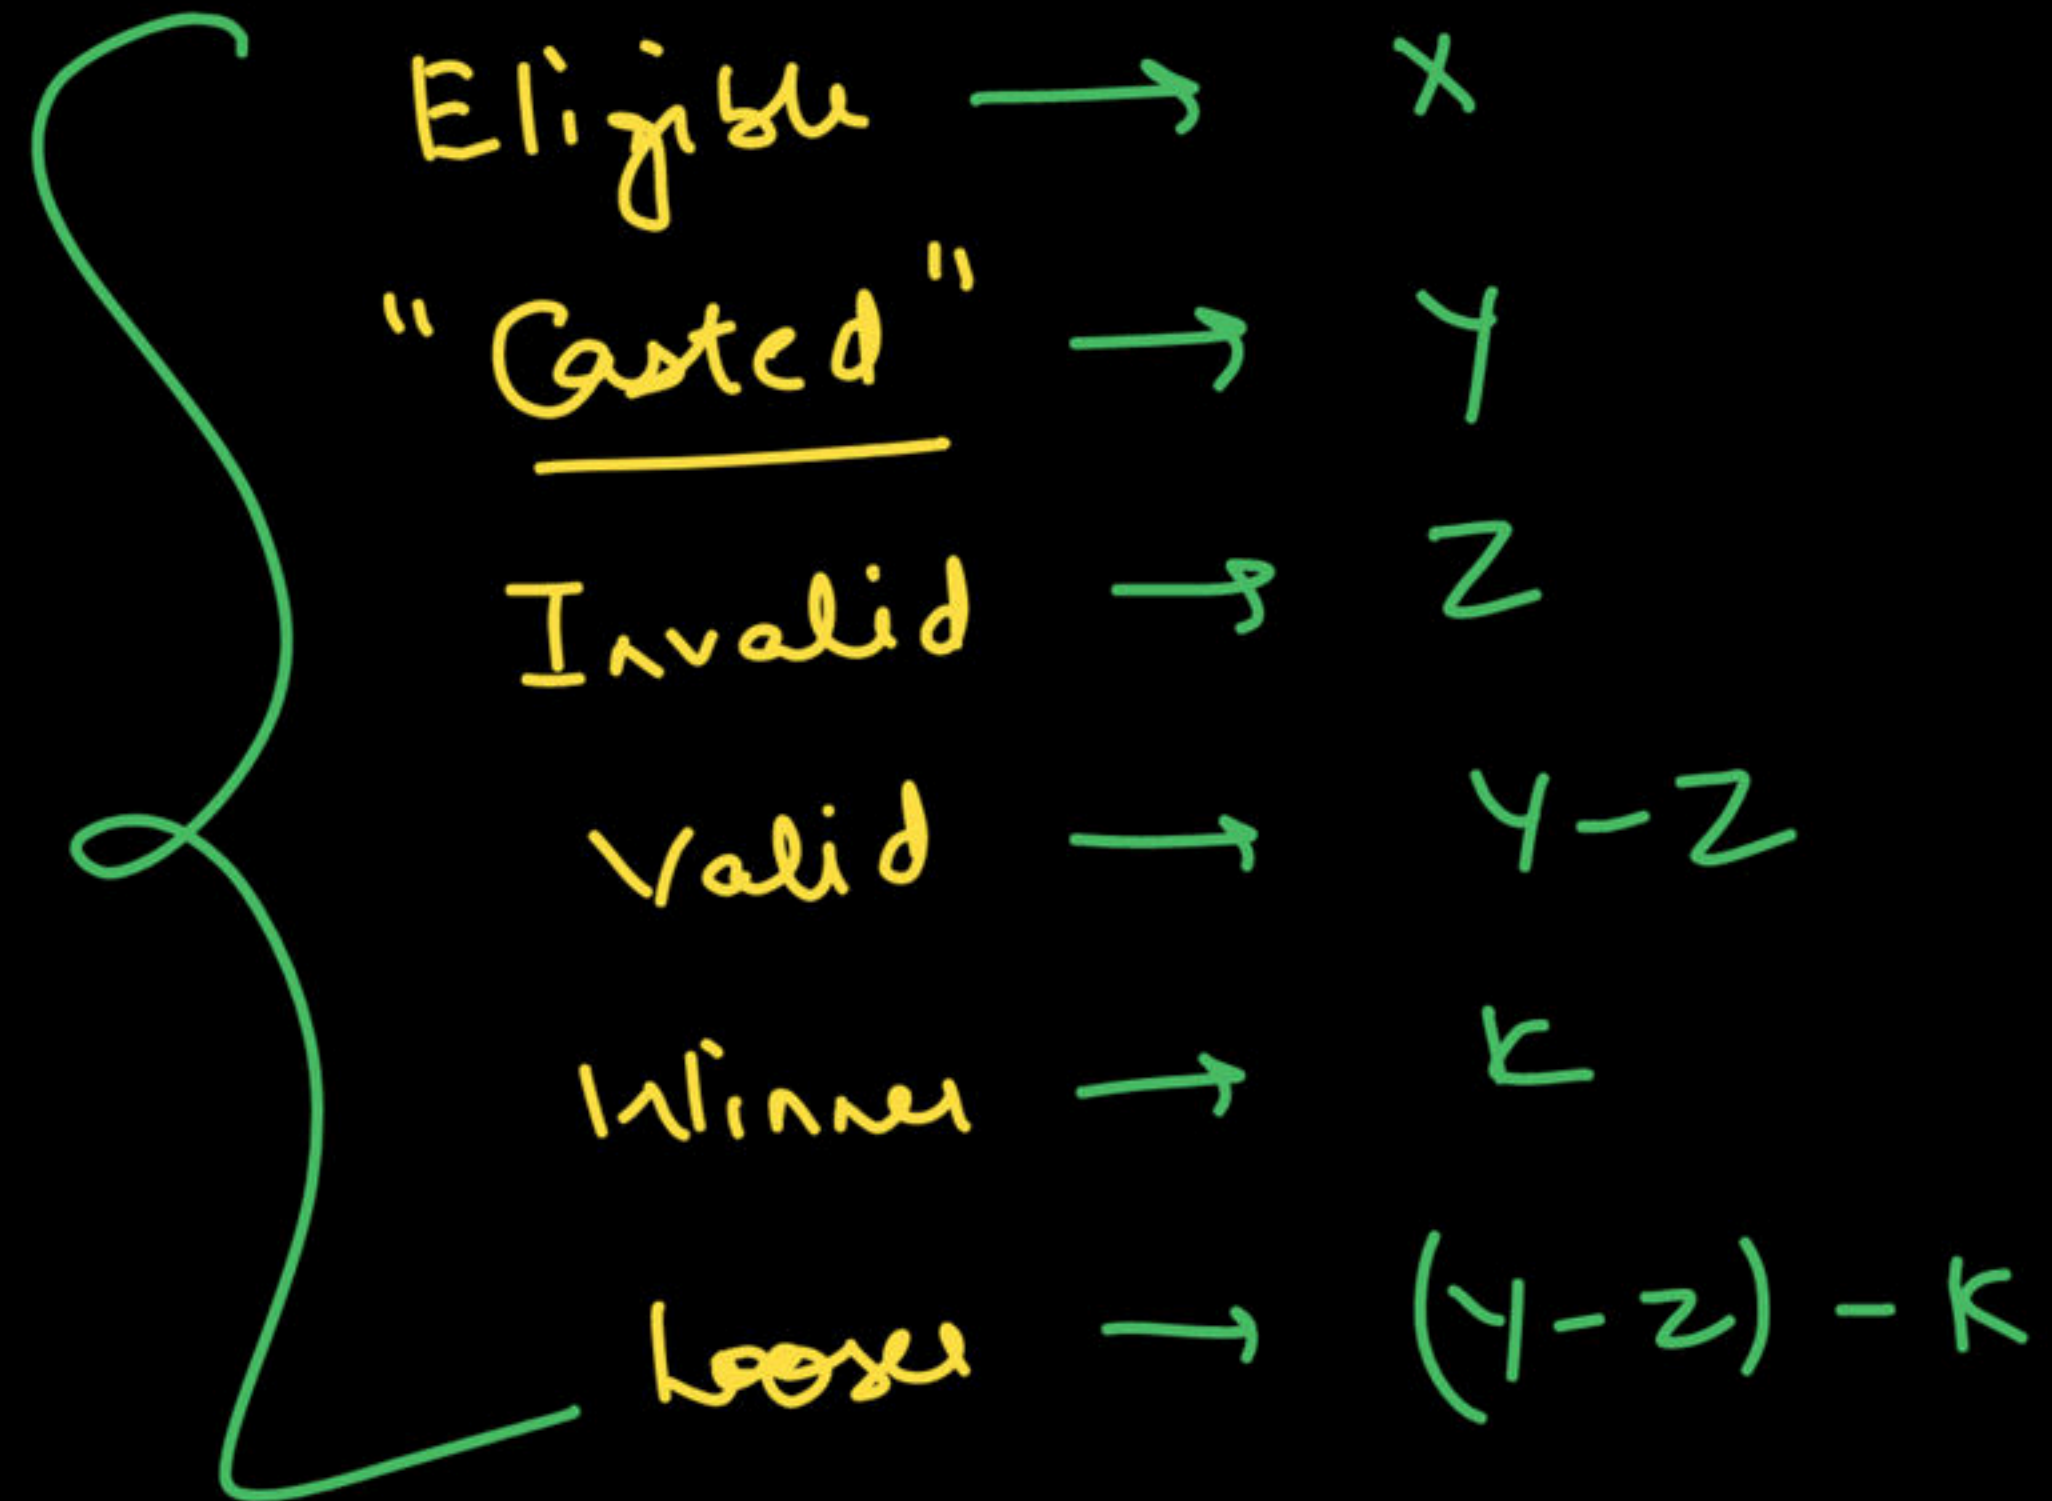 Eligible → X
"Casted" → Y
Invalid → Z
Valid → Y - Z
Winner → K
Looser → (Y - Z) - K